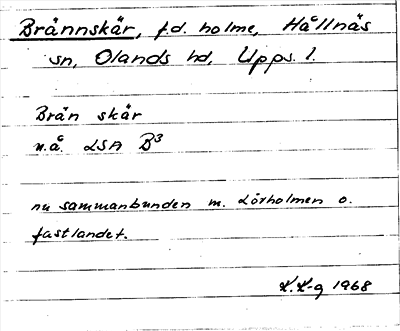 Brännskär, f.d. holme, Hållnäs
sn, Olands hd, Upps. l.
Brän skär
u.å. LSA B3
nu sammanbunden m. Lörholmen o.
fastlandet.
K.K-g 1968